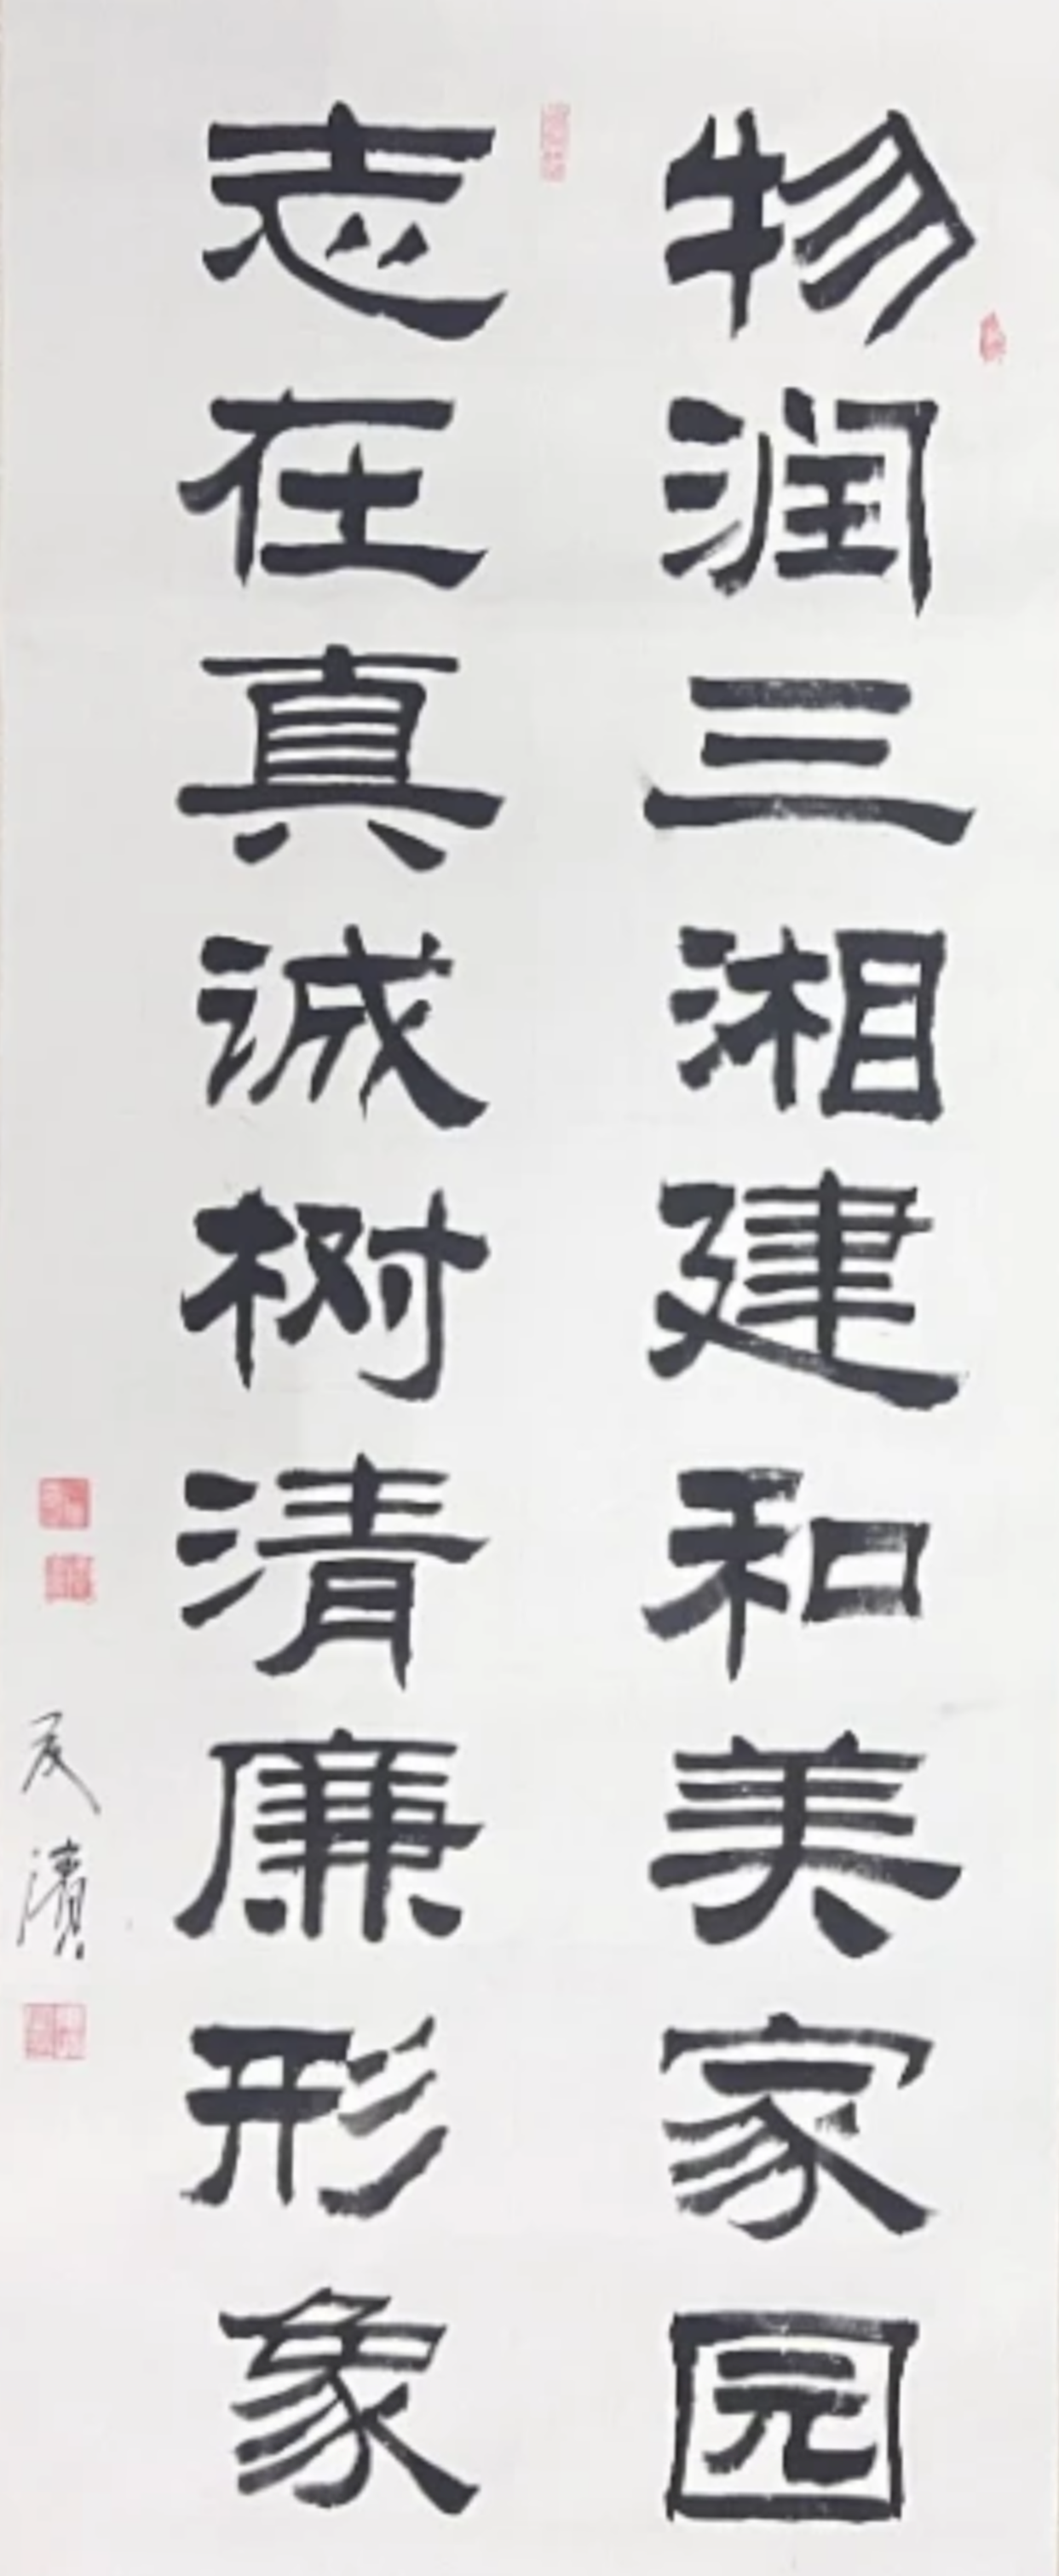 物润三湘建和美家园
志在真诚树清廉形象
友清